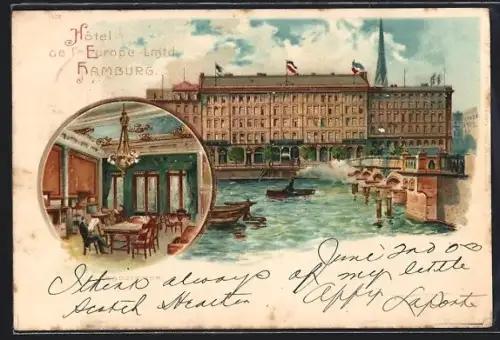 Hôtel
de l'Europe Lmtd.
HAMBURG.
June 2nd 00
I think always of my little
Scotch
Appy Laporte